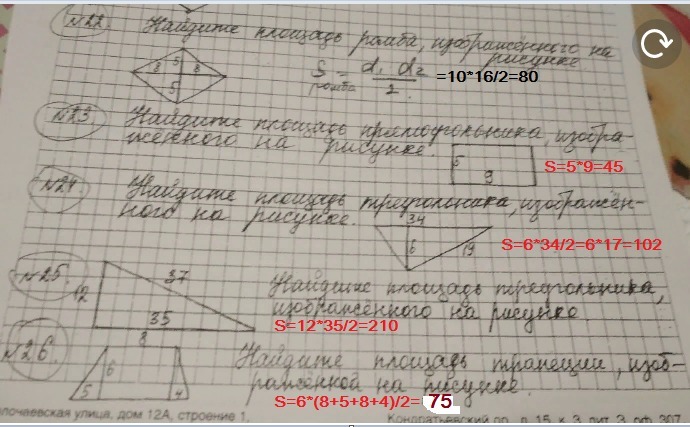 №22. Найдите площадь ромба, изображённого на
рисунке
8 5 8
5
S ромба = d1 d2 / 2 =10*16/2=80
№23. Найдите площадь прямоугольника, изобра-
жённого на рисунке.
5
9
S=5*9=45
№24 Найдите площадь треугольника, изображён-
ного на рисунке.
34
6 19
S=6*34/2=6*17=102
№25. 12 37
35
Найдите площадь треугольника,
изображённого на рисунке
S=12*35/2=210
№26. 8
6
5 4
Найдите площадь трапеции, изоб-
ражённой на рисунке.
S=6*(8+5+8+4)/2= 75
лочаевская улица, дом 12А, строение 1.
Кондратьевский пр., д. 15, к. 3, лит. 3, оф. 307